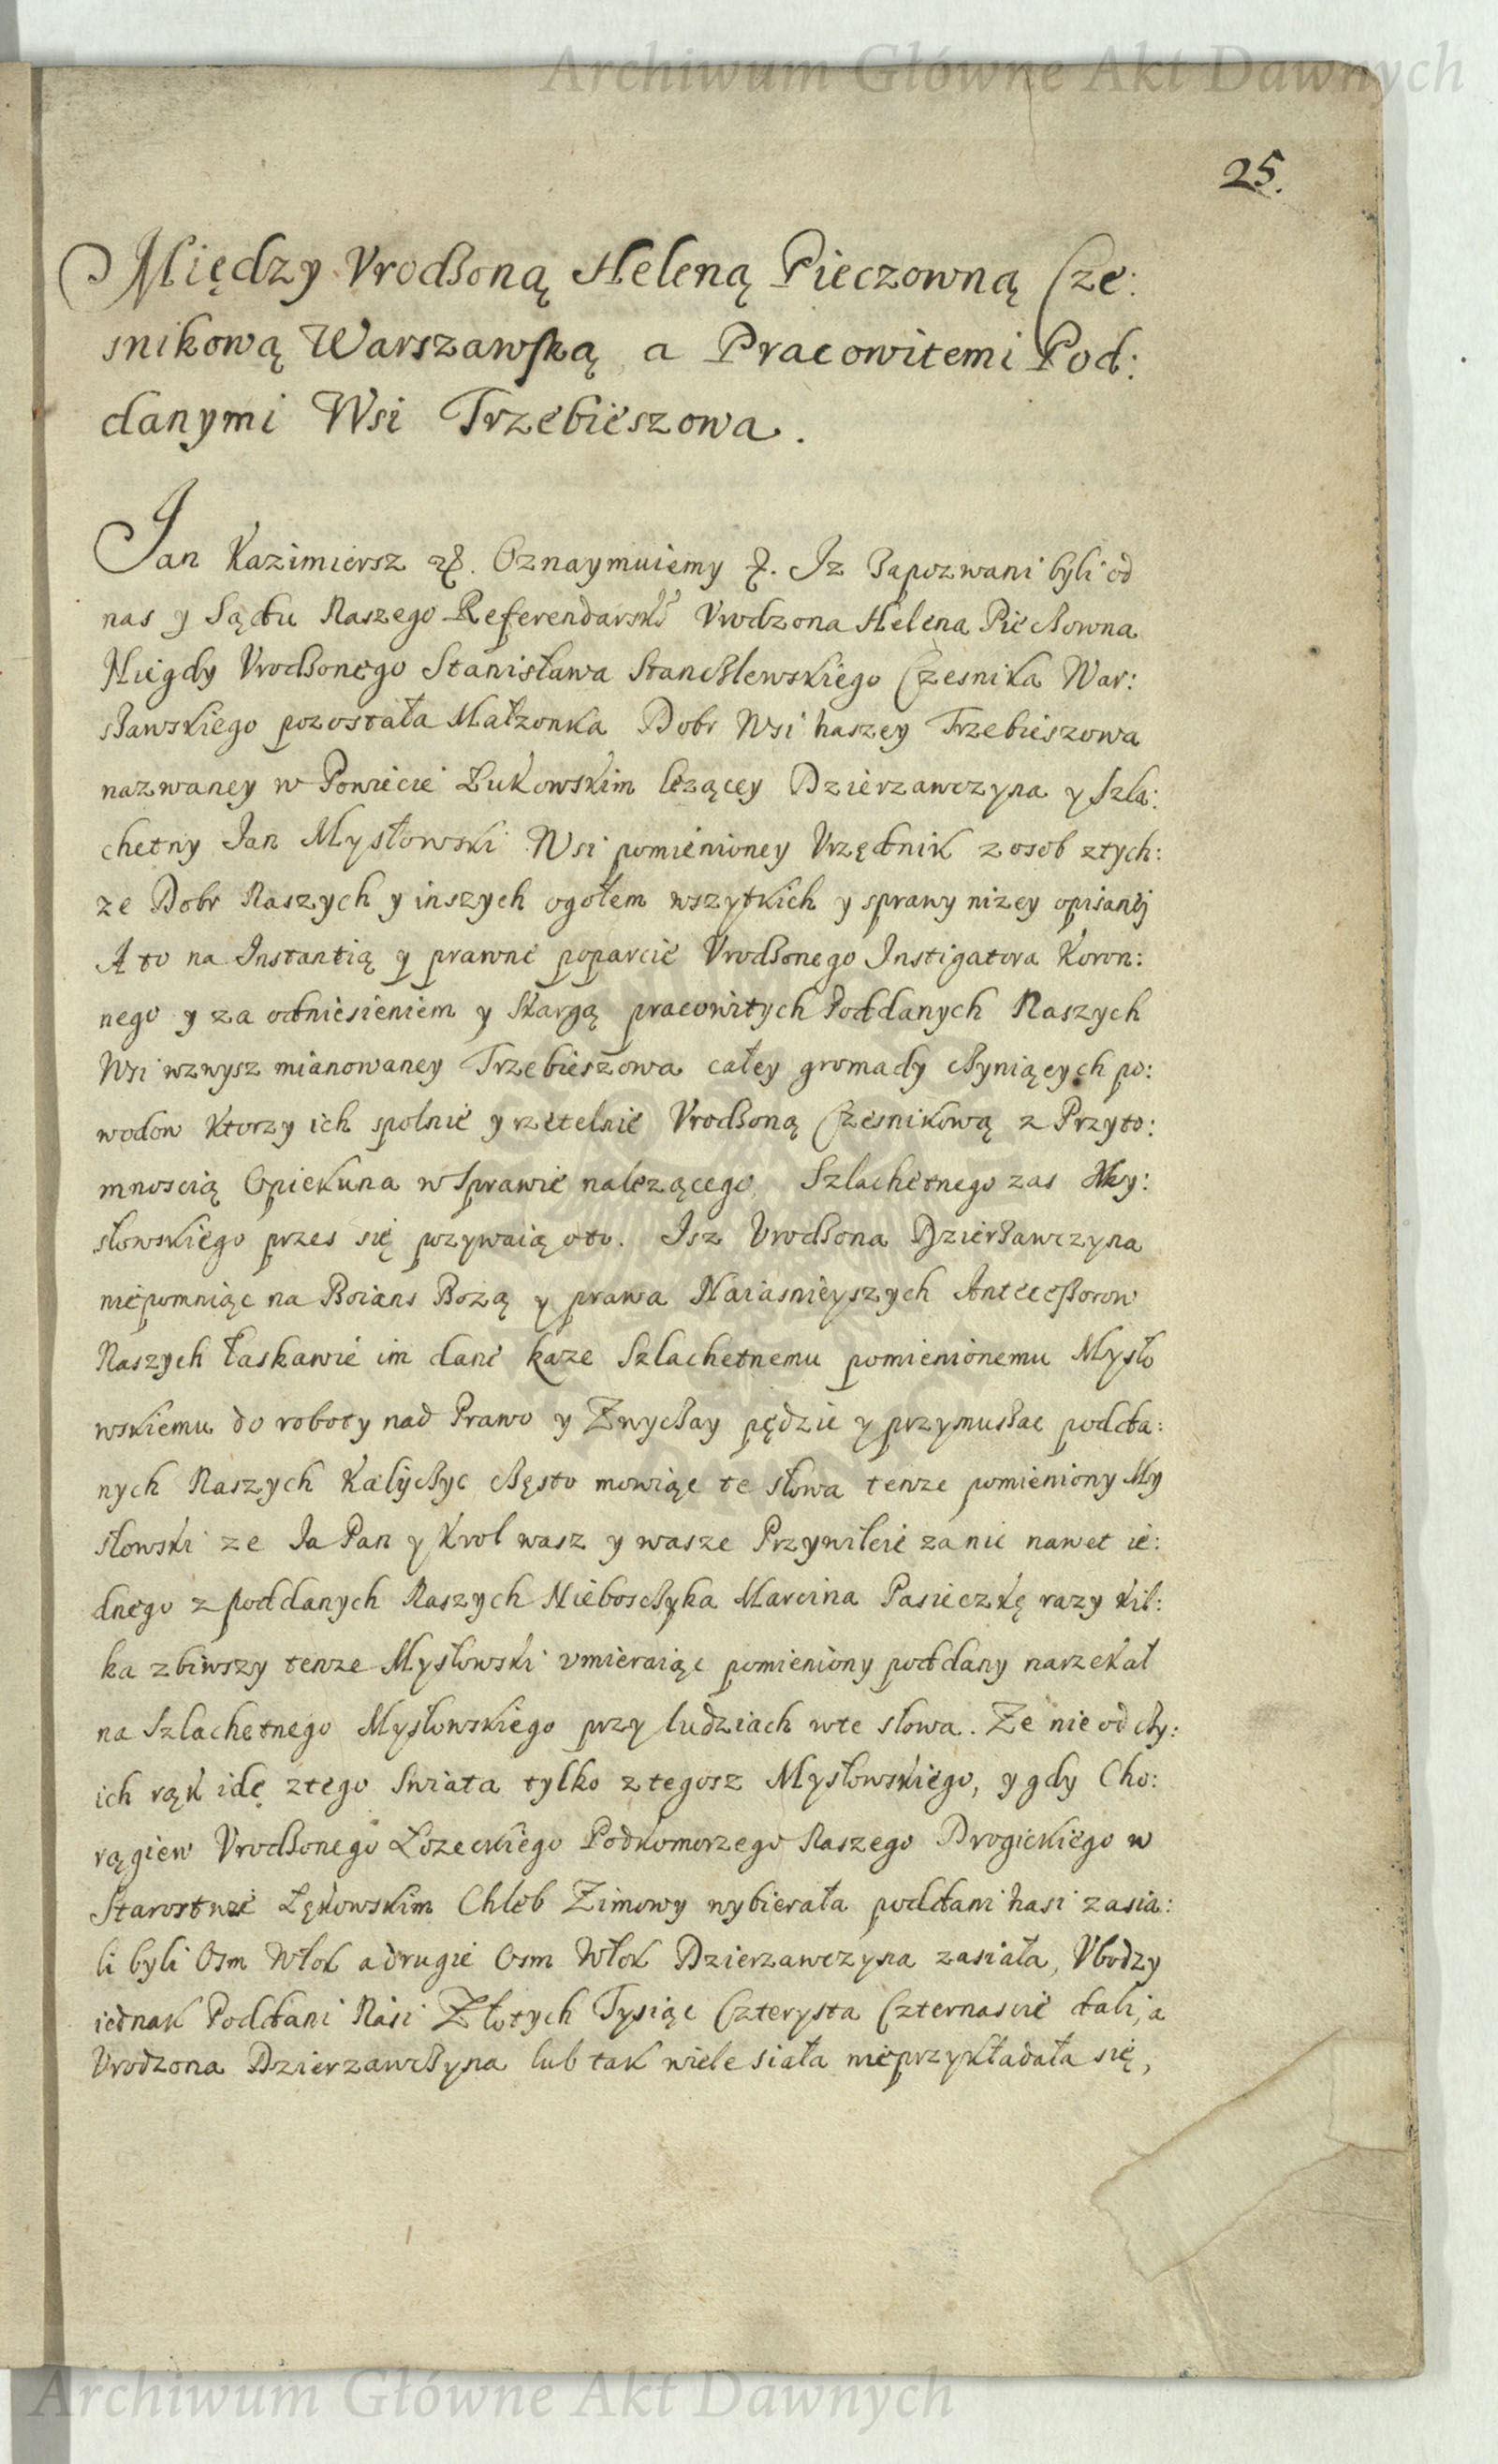 Archiwum Główne Akt Dawnych
25.
Między Vrodzoną Heleną Pieczowną Cze:
snikową Warszawską a Pracowitemi Pod:
danymi Wsi Trzebieszowa.
Jan Kazimiersz etc. Oznaymuiemy etc. Iz Zapozwani byli od
nas y Sądu Naszego Referendarskiego Vrodzona Helena Pieczowna
Niegdy Vrodzonego Stanisława Stanczlewskiego Czesnika War:
szawskiego pozostała Małzonka Dobr Wsi naszey Trzebieszowa
nazwaney w Powiecie Łukowskim lezącey Dzierzawczyna y Szla:
chetny Jan Mysłowski Wsi pomienioney Vrzędnik z osob ztych:
ze Dobr Naszych y inszych ogołem wszytkich y sprawy nizey opisanej
A to na Instantią y prawne poparcie Vrodzonego Instigatora Koron:
nego y za odniesieniem y Skargą pracowitych Poddanych Naszych
Wsi wzwysz mianowaney Trzebieszowa całey gromady czyniących po:
wodow Ktorzy ich spolnie y rzetelnie Vrodzoną Czesnikową z Przyto:
mnoscią Opiekuna w Sprawie nalezącego, Szlachetnego zas My:
słowskiego przes się pozywaią oto. Isz Vrodzona Dzierzawczyna
niepomniąc na Boiazn Bozą y prawa Naiasnieyszych Antecessorow
Naszych łaskawie im dane kaze Szlachetnemu pomienionemu Mysło
wskiemu do roboty nad Prawo y Zwyczay pędzic y przymuszac podda:
nych Naszych Kaliczyc często mowiąc te słowa tenze pomieniony My
słowski ze Ja Pan y Krol wasz y wasze Przywileie za nic nawet ie:
dnego z poddanych Naszych Nieboszczyka Marcina Pasieczkę razy kil:
ka zbiwszy tenze Mysłowski vmieraiąc pomieniony poddany narzekał
na Szlachetnego Mysłowskiego przy ludziach wte słowa. Ze nie od czy:
ich rąk idę ztego Swiata tylko z tegosz Mysłowskiego, y gdy Cho:
rągiew Vrodzonego Łozeckiego Podkomorzego Naszego Drogickiego w
Starostwie Łękowskim Chleb Zimowy wybierała poddani nasi zasia:
li byli Osm Włok a drugie Osm Włok Dzierzawczyna zasiała, Vbodzy
iednak Poddani Nasi Złotych Tysiąc Czterysta Czternascie dali, a
Vrodzona Dzierzawczyna lub tak wiele siała nieprzykładała się,
Archiwum Główne Akt Dawnych